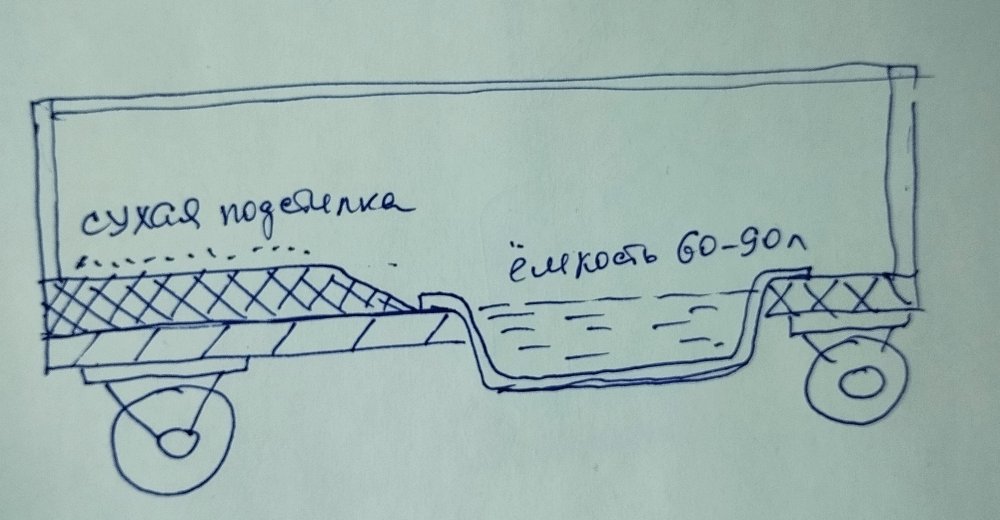 сухая подстилка
ёмкость 60-90л